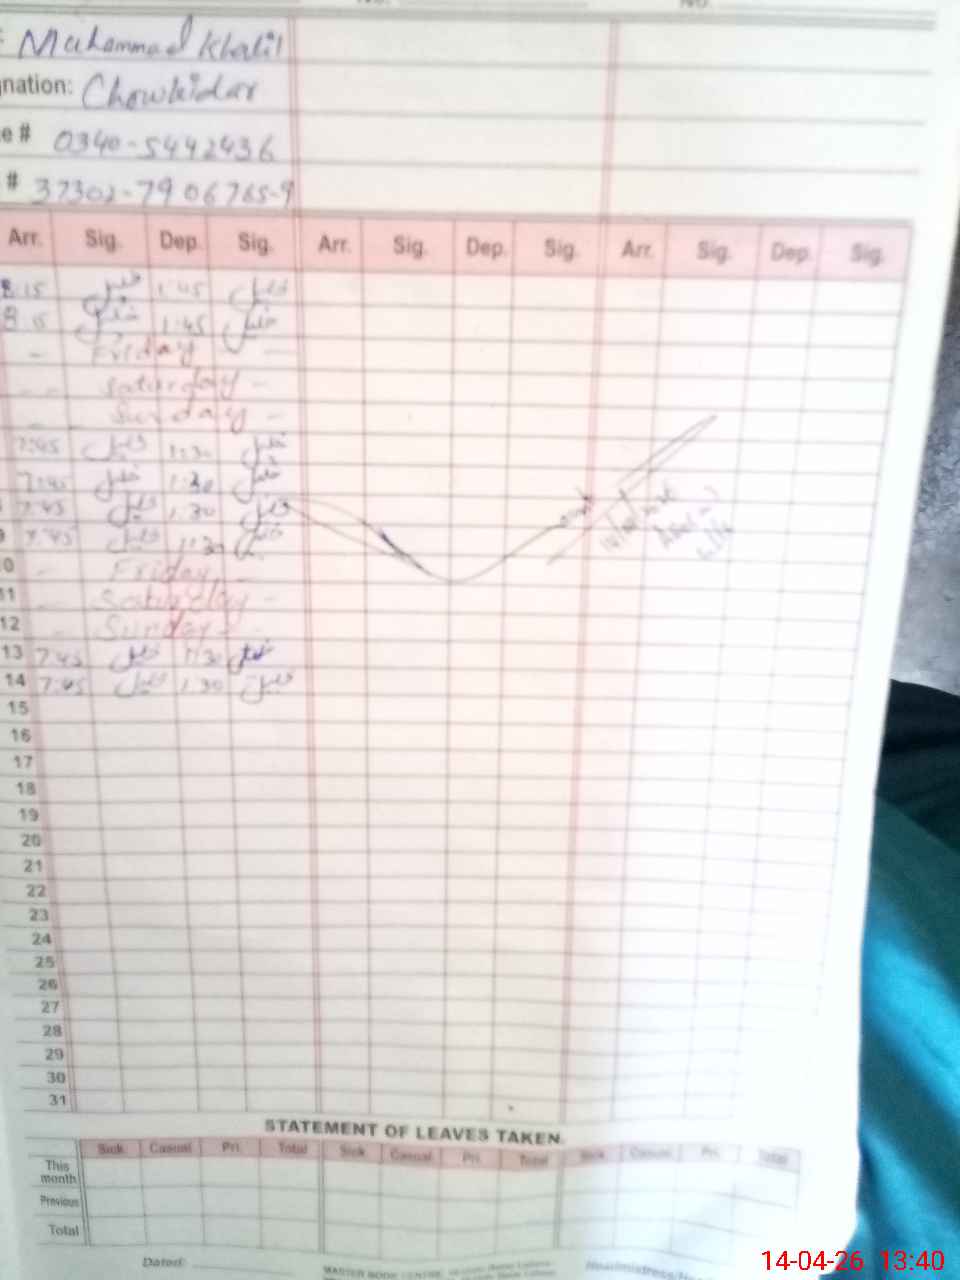 No. No.
: Muhammad Khalil
gnation: Chowkidar
e # 0340-5442436
# 37302-7906765-9
Arr. Sig. Dep. Sig. Arr. Sig. Dep. Sig. Arr. Sig. Dep. Sig.
8:15 خلیل 1:45 خلیل
8:15 خلیل 1:45 خلیل
- Friday -
- Saturday -
- Sunday -
7:45 خلیل 1:30 خلیل
7:45 خلیل 1:30 خلیل
7:45 خلیل 1:30 خلیل
9 7:45 خلیل 1:30 خلیل
0 - Friday -
11 - Saturday -
12 - Sunday -
13 7:45 خلیل 1:30 خلیل
14 7:45 خلیل 1:30 خلیل
15
16
17
18
19
20
21
22
23
24
25
26
27
28
29
30
31
STATEMENT OF LEAVES TAKEN.
Sick Casual Pri. Total Sick Casual Pri. Total Sick Casual Pri. Total
This month
Previous
Total
Dated:
MASTER BOOK CENTRE
14-04-26 13:40